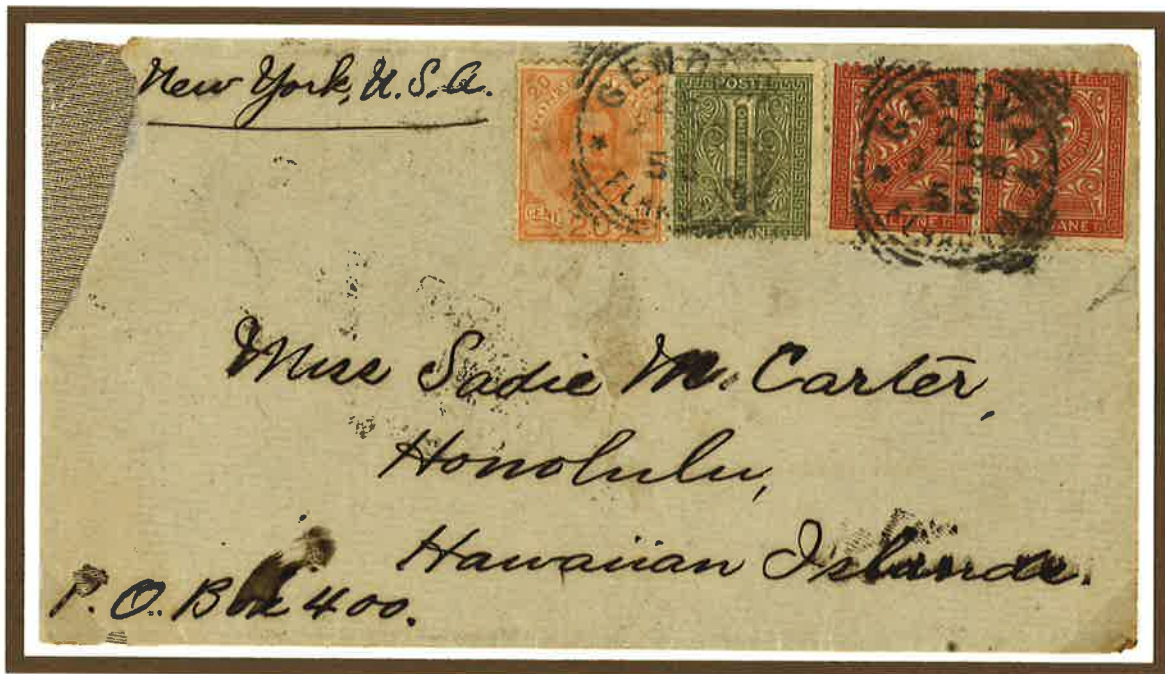 New York, U.S.A.
20
CENT 20
POSTE
GENOVA
Miss Sadie M. Carter,
Honolulu,
Hawaiian Islands.
P. O. Box 400.